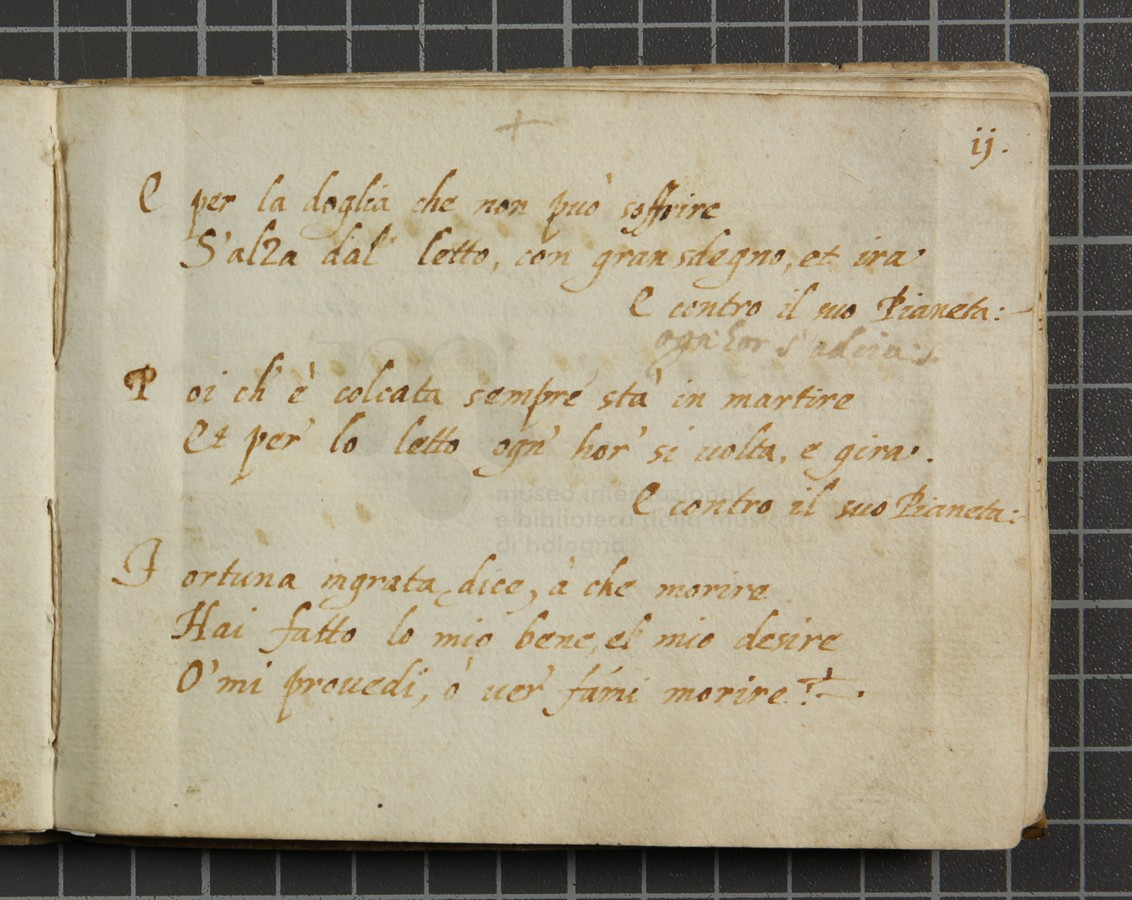 ij.
E per la doglia che non può soffrire
S'alza dal letto, con gran sdegno, et ira
E contro il suo Pianeta:
ogn'hor s'adira.
Poi ch'è colcata sempre stà in martire
Et per lo letto ogn'hor' si uolta, e gira.
E contro il suo Pianeta:
museo internazionale
e biblioteca della musica
di bologna
Fortuna ingrata, dice, à che morire
Hai fatto lo mio bene, el mio desire
O' mi prouedi, ò uer' fámi morire